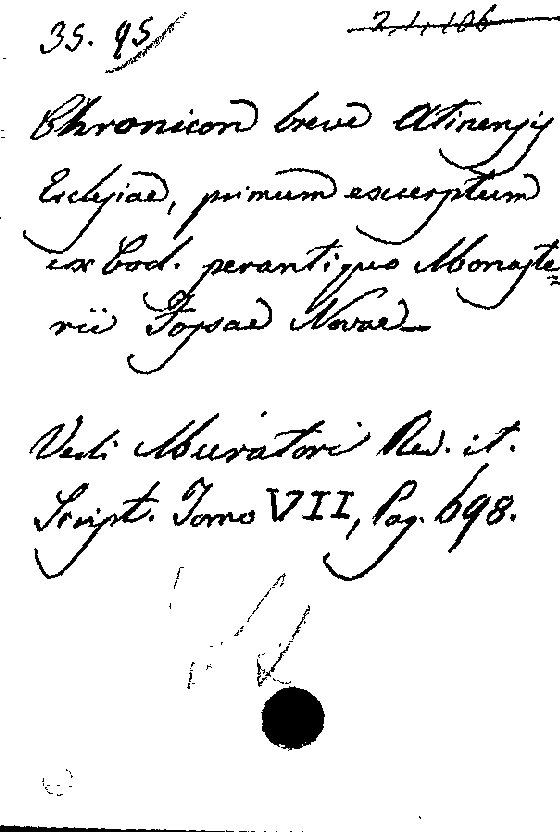 35. 95
2/1/106
Chronicon breve Atinensis
Eclesiae, primum excerptum
ex Cod. perantiquo Monaste=
rii Fossae Novae
Vedi Muratori Rer. it.
Script. Tomo VII, Pag. 698.